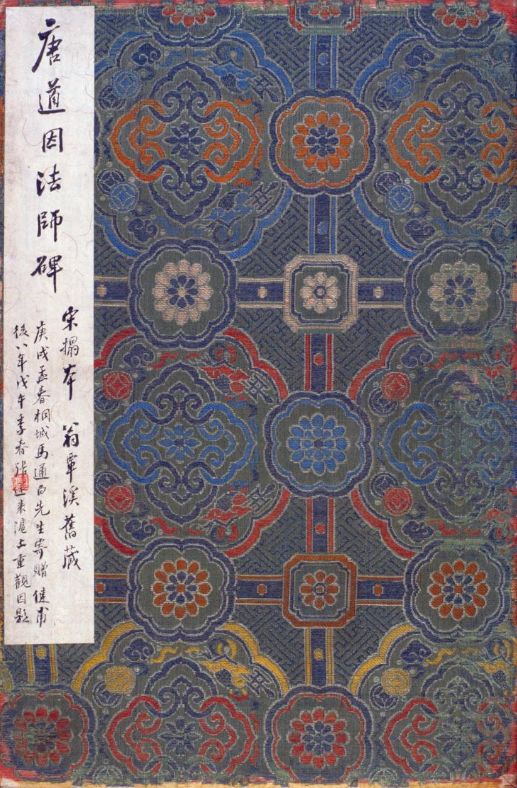 唐道因法師碑
宋搨本 翁覃溪舊藏
庚戌孟春桐城馬通白先生寄贈健甫
後八年戊午季春張 來滬上重觀因題